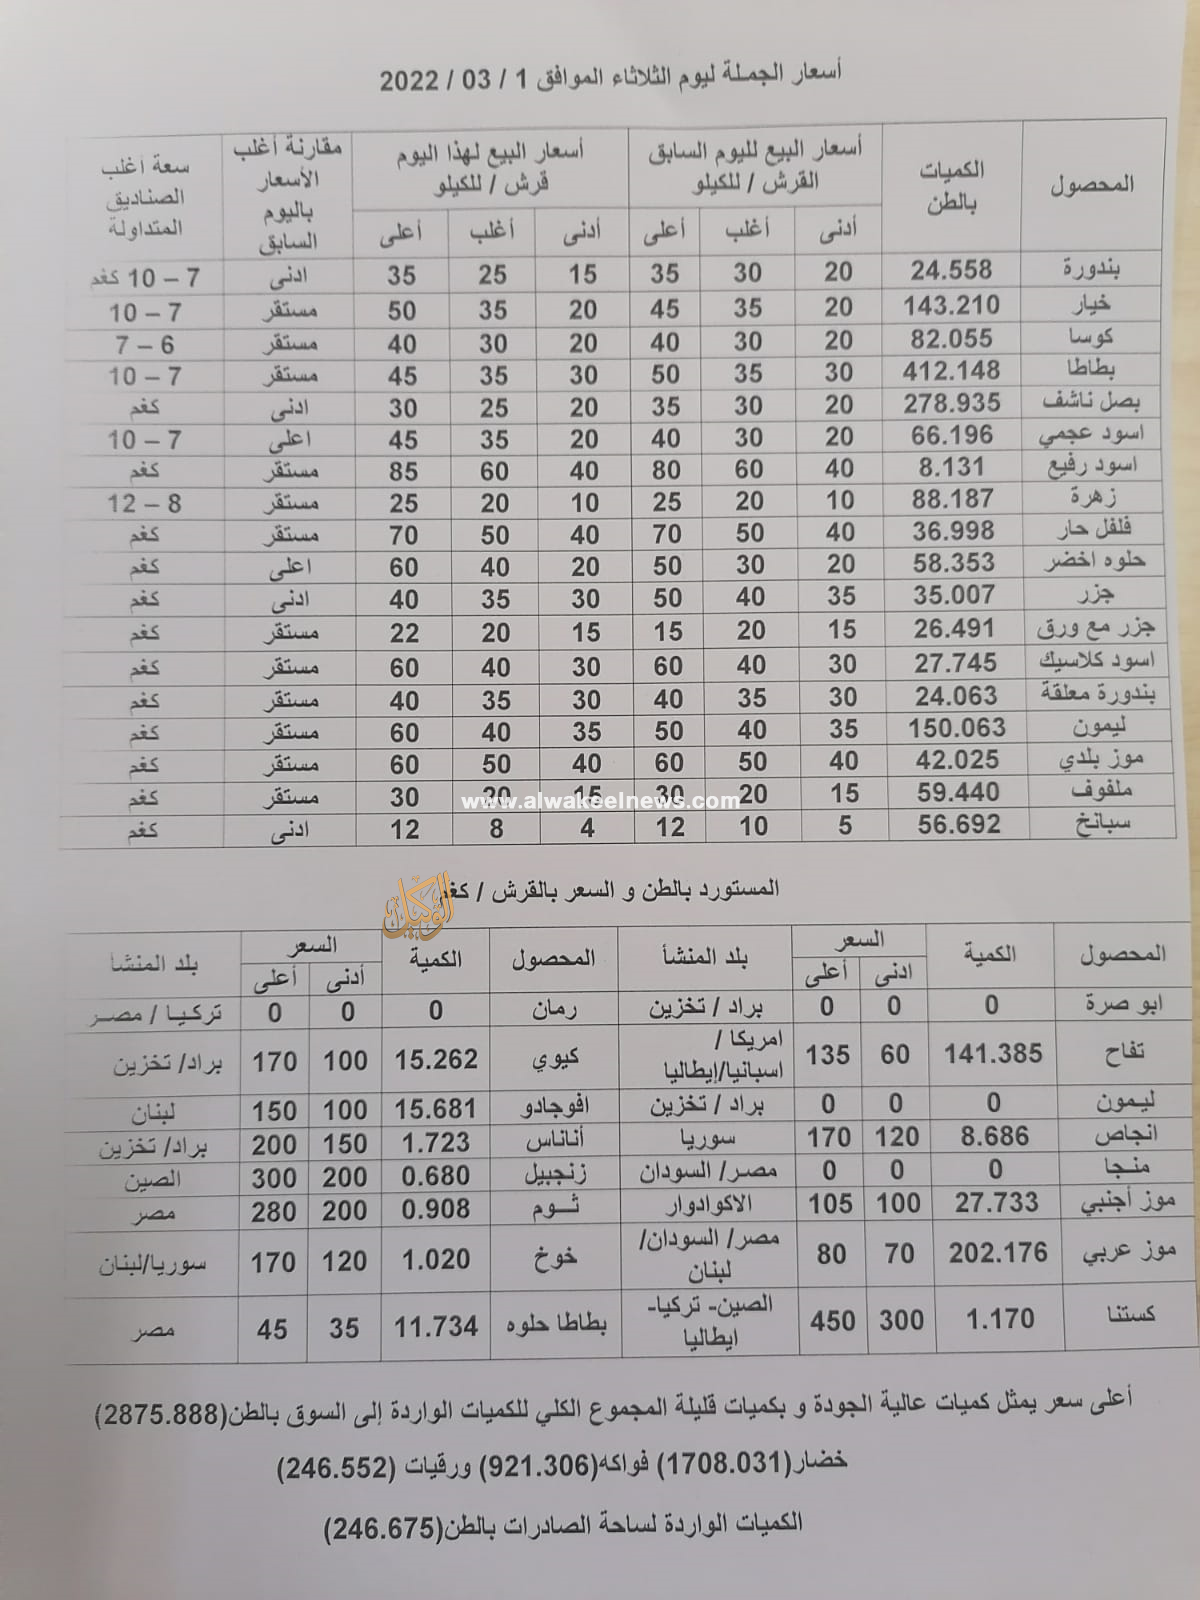 أسعار الجملة ليوم الثلاثاء الموافق 1 / 03 / 2022
المحصول الكميات بالطن أسعار البيع لليوم السابق القرش / للكيلو أسعار البيع لهذا اليوم قرش / للكيلو مقارنة أغلب الأسعار باليوم السابق سعة أغلب الصناديق المتداولة
أدنى أغلب أعلى أدنى أغلب أعلى
بندورة 24.558 20 30 35 15 25 35 ادنى 7 – 10 كغم
خيار 143.210 20 35 45 20 35 50 مستقر 7 – 10
كوسا 82.055 20 30 40 20 30 40 مستقر 6 – 7
بطاطا 412.148 30 35 50 30 35 45 مستقر 7 – 10
بصل ناشف 278.935 20 30 35 20 25 30 ادنى كغم
اسود عجمي 66.196 20 30 40 20 35 45 اعلى 7 – 10
اسود رفيع 8.131 40 60 80 40 60 85 مستقر كغم
زهرة 88.187 10 20 25 10 20 25 مستقر 8 – 12
فلفل حار 36.998 40 50 70 40 50 70 مستقر كغم
حلوه اخضر 58.353 20 30 50 20 40 60 اعلى كغم
جزر 35.007 35 40 50 30 35 40 ادنى كغم
جزر مع ورق 26.491 15 20 15 15 20 22 مستقر كغم
اسود كلاسيك 27.745 30 40 60 30 40 60 مستقر كغم
بندورة معلقة 24.063 30 35 40 30 35 40 مستقر كغم
ليمون 150.063 35 40 50 35 40 60 مستقر كغم
موز بلدي 42.025 40 50 60 40 50 60 مستقر كغم
ملفوف 59.440 15 20 30 15 20 30 مستقر كغم
www.alwakeelnews.com
سبانخ 56.692 5 10 12 4 8 12 ادنى كغم
المستورد بالطن و السعر بالقرش / كغم
الوكيل
المحصول الكمية السعر بلد المنشأ المحصول الكمية السعر بلد المنشأ
ادنى أعلى أدنى أعلى
ابو صرة 0 0 0 براد / تخزين رمان 0 0 0 تركيا / مصر
تفاح 141.385 60 135 امريكا / اسبانيا/إيطاليا كيوي 15.262 100 170 براد/ تخزين
ليمون 0 0 0 براد / تخزين افوجادو 15.681 100 150 لبنان
انجاص 8.686 120 170 سوريا أناناس 1.723 150 200 براد/ تخزين
منجا 0 0 0 مصر/ السودان زنجبيل 0.680 200 300 الصين
موز أجنبي 27.733 100 105 الاكوادوار ثوم 0.908 200 280 مصر
موز عربي 202.176 70 80 مصر/ السودان/ لبنان خوخ 1.020 120 170 سوريا/لبنان
كستنا 1.170 300 450 الصين- تركيا- ايطاليا بطاطا حلوه 11.734 35 45 مصر
أعلى سعر يمثل كميات عالية الجودة و بكميات قليلة المجموع الكلي للكميات الواردة إلى السوق بالطن(2875.888)
خضار(1708.031) فواكه(921.306) ورقيات (246.552)
الكميات الواردة لساحة الصادرات بالطن(246.675)